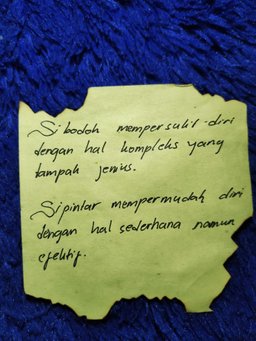 Si bodoh mempersulit diri
dengan hal kompleks yang
tampak jenius.
Si pintar mempermudah diri
dengan hal sederhana namun
efektif.